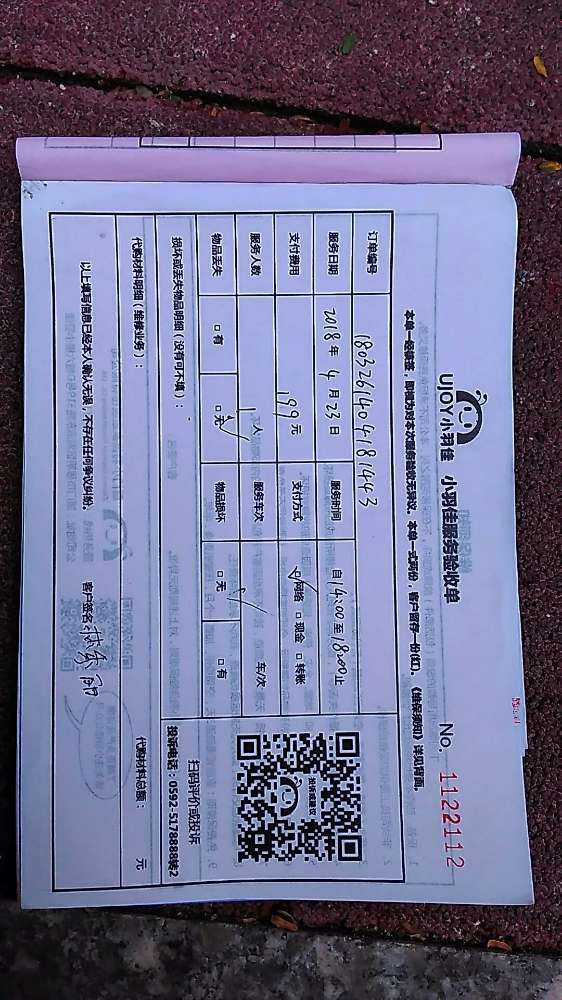 UJOY小羽佳 小羽佳服务验收单 No. 1122112
本单一经签签,即视为对本次服务验收无异议。本单一式两份,客户留存一份(红)。《维保须知》详见背面。
订单编号 1803261404181443
服务日期 2018年4月23日 服务时间 自14:00至18:00止
支付费用 199元 支付方式 ☑网络 □现金 □转账
服务人数 1人 服务车次 / 车/次
物品丢失 □有 ☑无 物品损坏 ☑无 □有
投诉或建议
扫码评价或投诉
投诉电话:0592-5178888转2
损坏或丢失物品明细(没有可不填):
代购材料明细(维修业务): 代购材料总额: 元
以上填写信息已经本人确认无误,不存在任何争议纠纷。 客户签名: